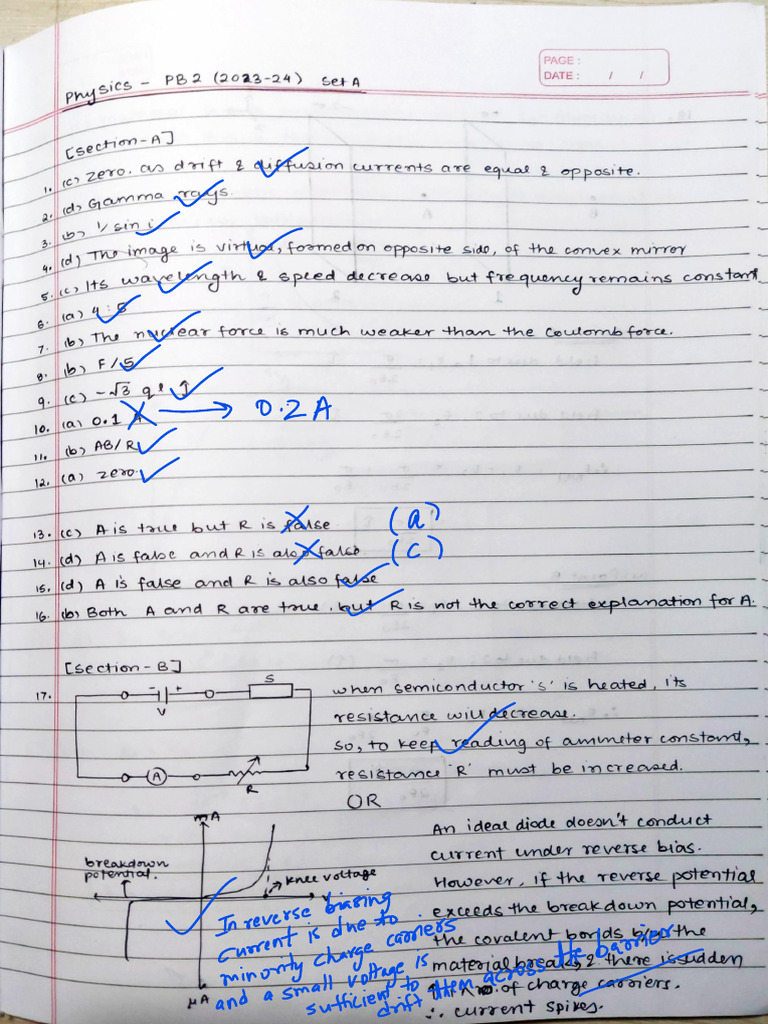 PAGE :
DATE : / /
Physics - PB2 (2023-24) Set A
[Section-A]
1. (c) Zero. as drift & diffusion currents are equal & opposite.
2. (d) Gamma rays.
3. (b) 1/sin i
4. (d) The image is virtual, formed on opposite side, of the convex mirror
5. (c) Its wavelength & speed decrease but frequency remains constant
6. (a) 4:5
7. (b) The nuclear force is much weaker than the Coulomb force.
8. (b) F/5
9. (c) -√3 qℓ ĵ
10. (a) 0.1 A → 0.2 A
11. (b) AB/R
12. (a) zero.
13. (c) A is true but R is false (a)
14. (d) A is false and R is also false (c)
15. (d) A is false and R is also false
16. (b) Both A and R are true. but R is not the correct explanation for A.
[Section-B]
17. - + S
V
A
R
when semiconductor 's' is heated, its
resistance will decrease.
So, to keep reading of ammeter constant,
resistance 'R' must be increased.
OR
mA
breakdown
potential.
knee voltage
V
μA
An ideal diode doesn't conduct
current under reverse bias.
However, if the reverse potential
exceeds the breakdown potential,
the covalent bonds the
material break, & there is sudden
of charge carriers.
∴ current spikes.
In reverse biasing
current is due to
minority charge carriers
and a small voltage is
sufficient to
drift them across the barrier